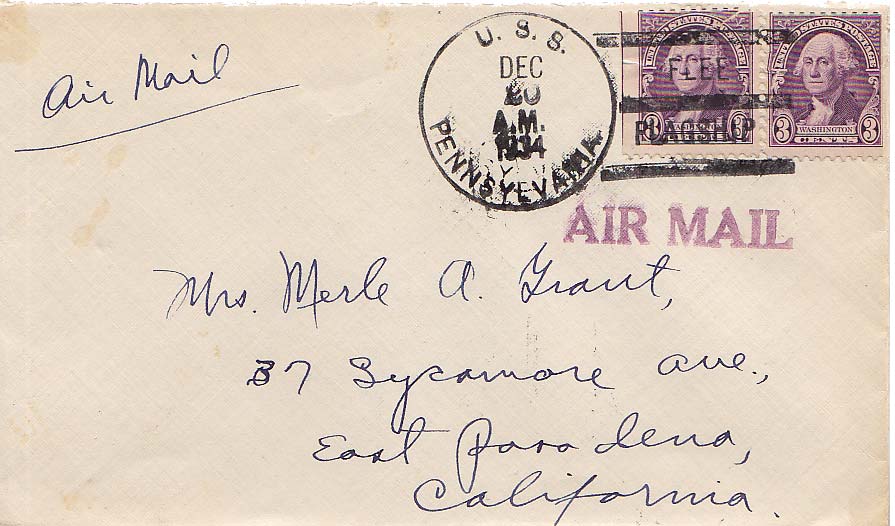 Air Mail
U. S. S.
DEC
20
A.M.
1934
PENNSYLVANIA
FLEET
FLAGSHIP
UNITED STATES POSTAGE
3 WASHINGTON 3
CENTS
UNITED STATES POSTAGE
3 WASHINGTON 3
CENTS
AIR MAIL
Mrs. Merle A. Grant,
37 Sycamore Ave.,
East Pasadena,
California.